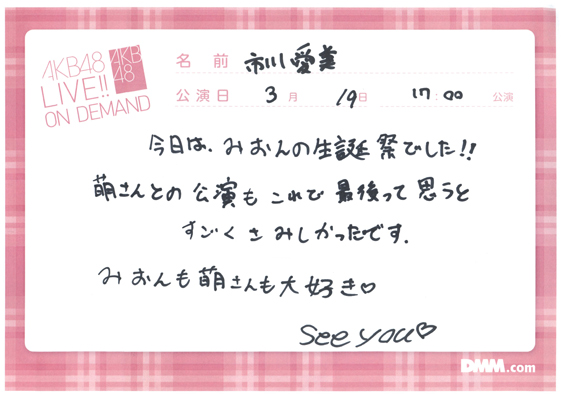 AKB48
LIVE!!
ON DEMAND
AKB
48
名前 市川愛美
公演日 3月 19日 17:00 公演
今日は、みおんの生誕祭でした!!
萌さんとの公演も これで 最後って思うと
すごく さみしかったです.
みおんも萌さんも大好き♡
See you♡
DMM.com